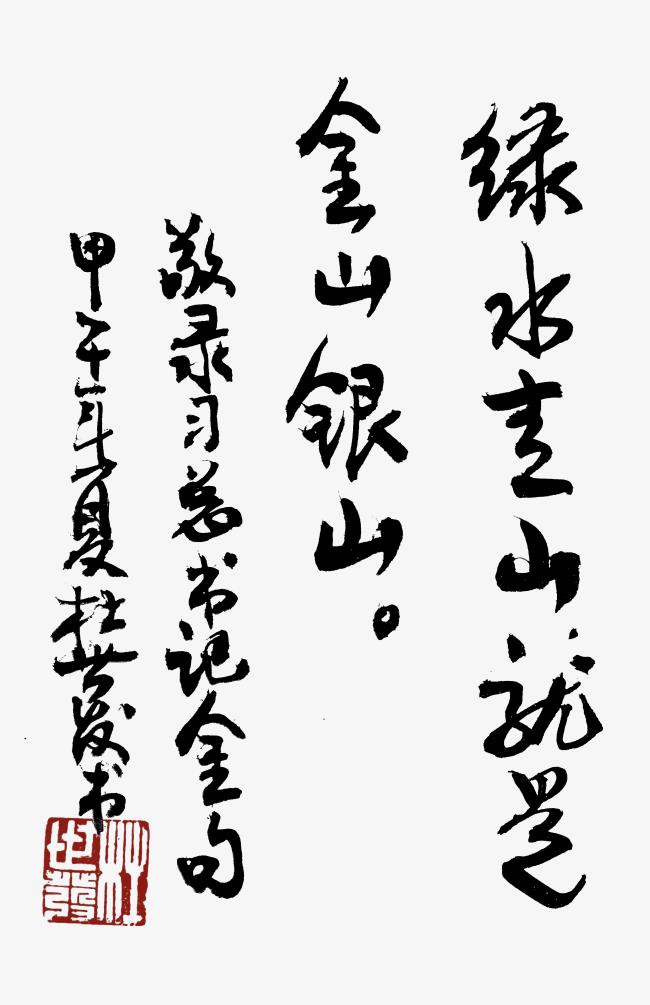 绿水青山就是
金山银山。
敬录习总书记金句
甲午年夏杜世发书
杜世發